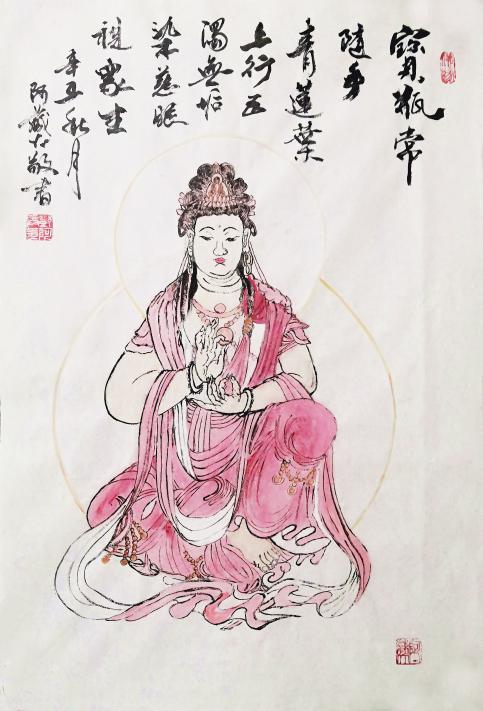 寶瓶常
隨手
青蓮葉
上行五
濁無垢
染慈眼
視衆生
辛丑秋月
阿藏敬書